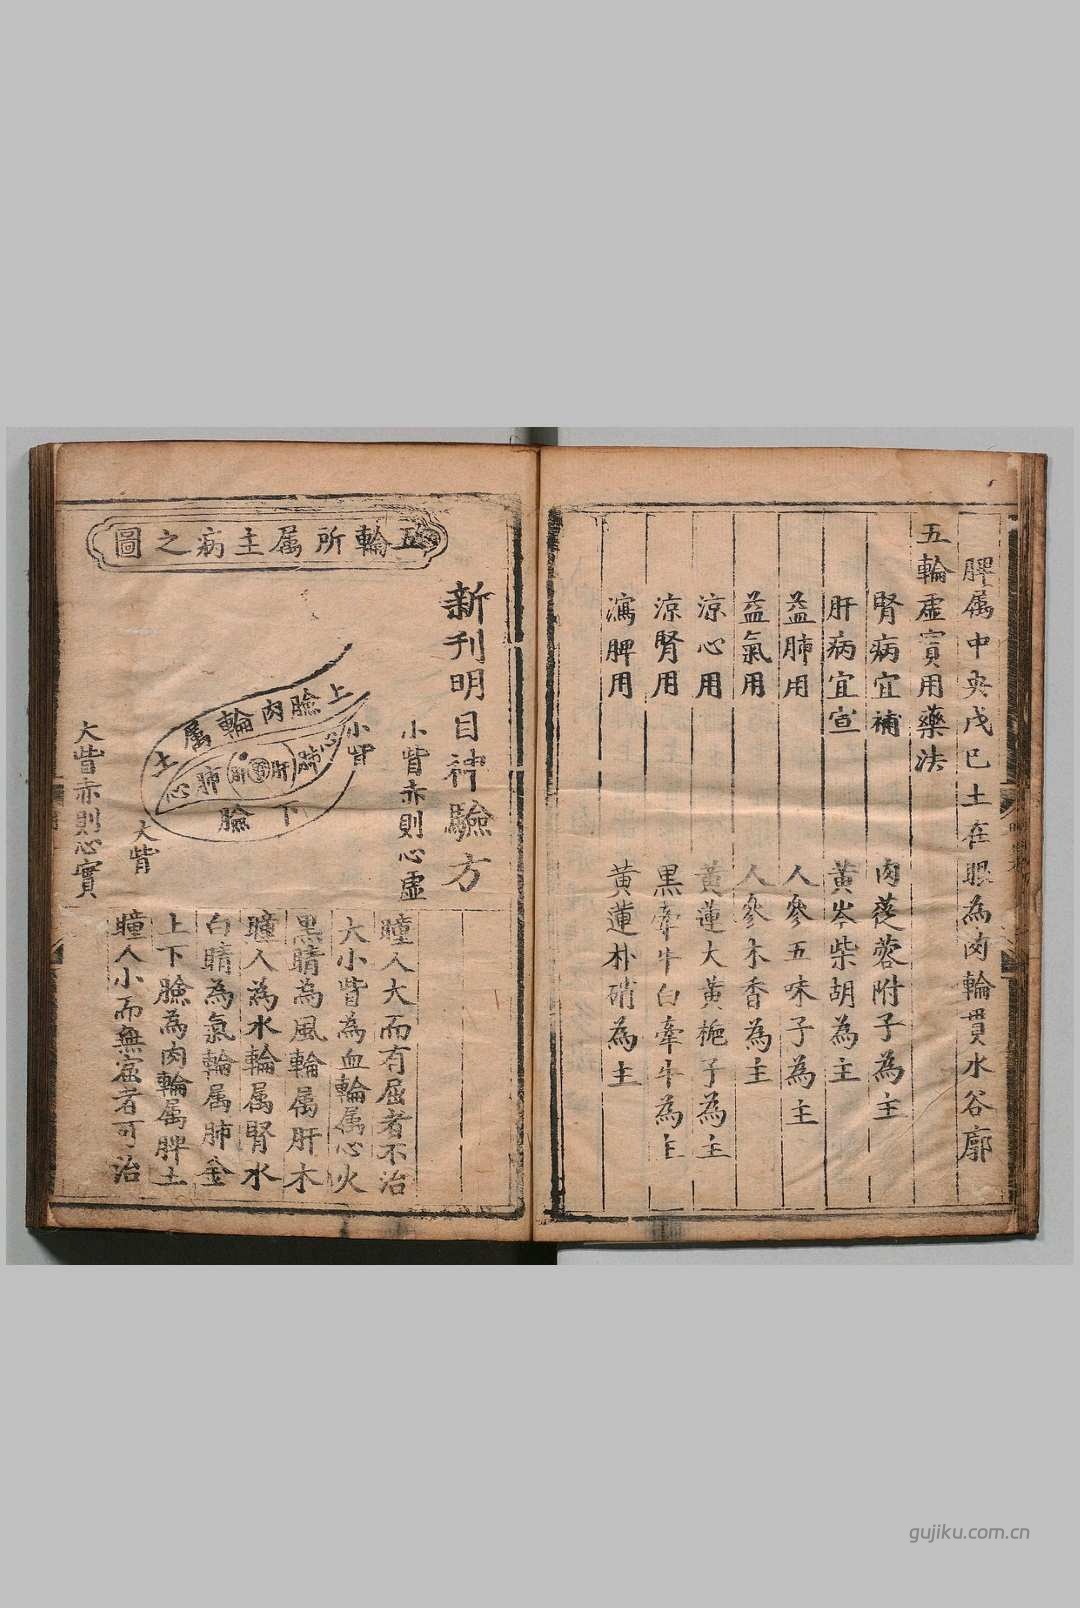 脾属中央戊巳土在眼為肉輪貫水谷廓
五輪虛實用藥法
腎病宜補 肉蓯蓉附子為主
肝病宜宣 黃岑柴胡為主
益肺用 人參五味子為主
益氣用 人參木香為主
涼心用 黃蓮大黃梔子為主
涼腎用 黑牽牛白牽牛為主
瀉脾用 黃蓮朴硝為主
新刊明目神驗方
五輪所属主病之圖
小眥赤則心虛
小眥
上臉肉輪属土
心肺肝腎肝肺心
下臉
大眥
大眥赤則心實
瞳人大而有屈者不治
大小眥為血輪属心火
黑睛為風輪属肝木
瞳人為水輪属腎水
白睛為氣輪属肺金
上下臉為肉輪属脾土
瞳人小而無屈者可治
gujiku.com.cn